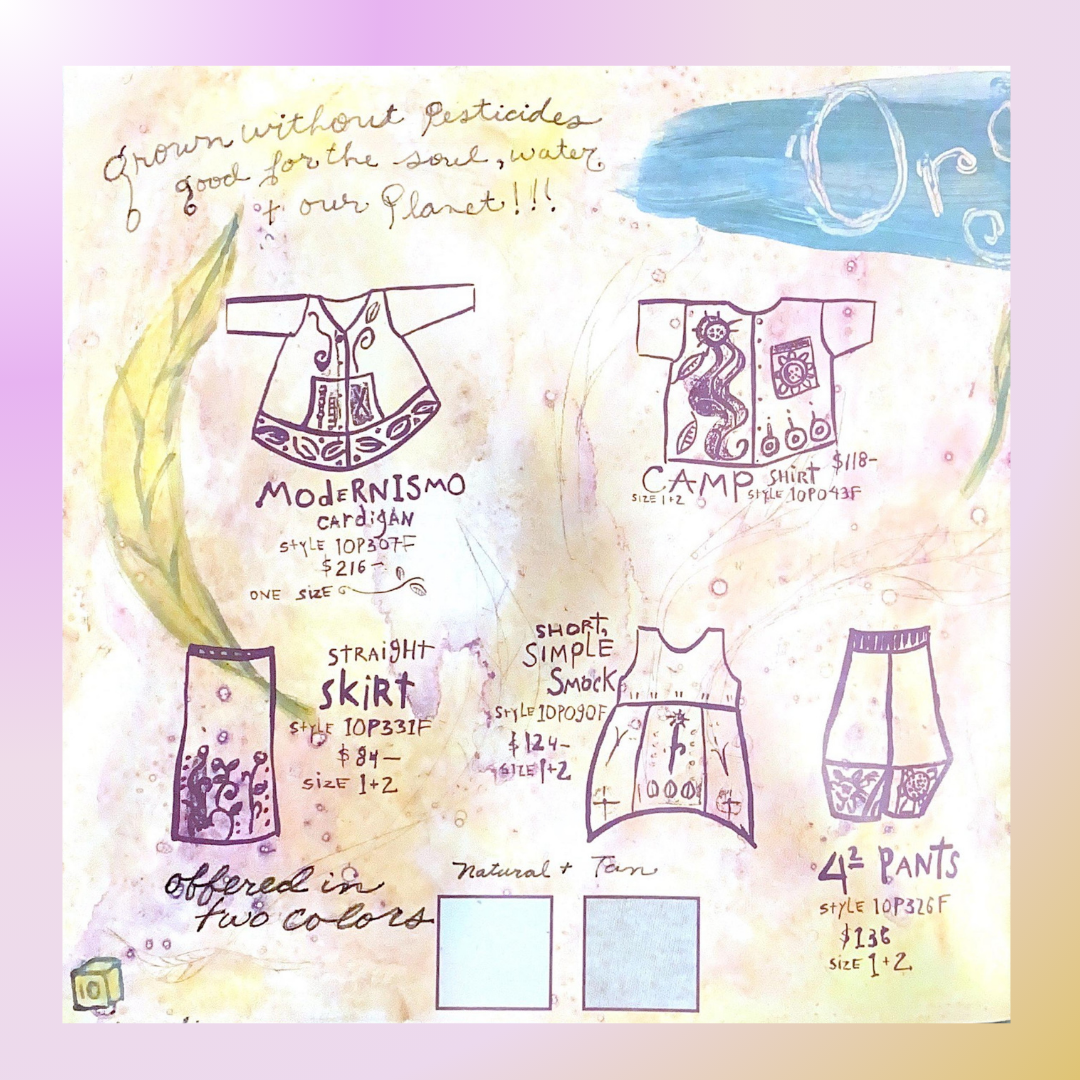 grown without Pesticides
good for the soul, water
+ our Planet!!!
Or
MOdERNISMO
CARdigAN
STYLE 10P307F
$216-
ONE SIZE
CAMP SHIRT $118-
SIZE 1+2 STYLE 10P043F
STRAIGHT
SKIRT
STYLE 10P331F
$84-
SIZE 1+2
SHORT,
SIMPLE
SMOCK
STYLE 10P090F
$124-
SIZE 1+2
4² PANTS
STYLE 10P326F
SIZE 1+2
offered in
two colors
Natural + Tan
10